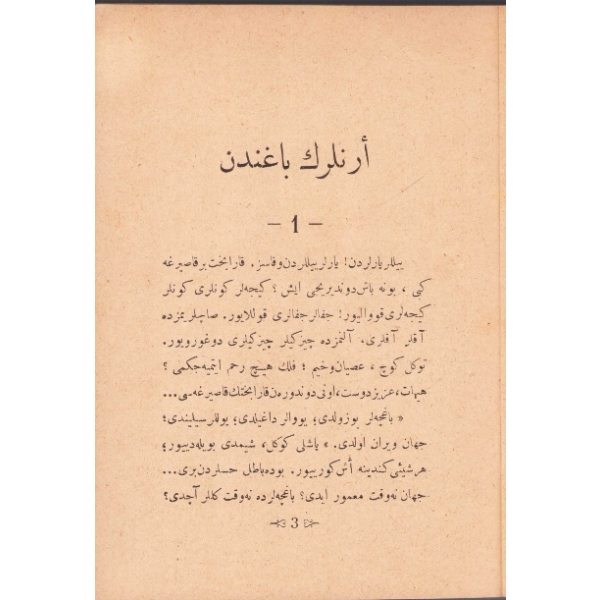 أرنلرك باغندن
— 1 —
ييللر يارلردن! يارلر ييللردن وفاسز. قارا بخت بر قاصيرغه
كبى، بونه باش دوندیريجى ايش؟ كيجه‌لر كونلرى كونلر
كيجه‌لرى قوواليور! جفالر جفالرى قوللايور. صاچلريمزده
آقلر آقلرى. آلنمزده چيزكيلر چيزكيلرى دوغورويور.
توكل كوچ، عصيان وخيم؛ فلك هيچ رحم ايتميه‌جكمى؟
هيهات، عزيز دوست، اونى دوندورەن قارا بختك قاصيرغه سى...
« باغچه‌لر بوزولدى؛ يووالر داغيلدى؛ يوللر سيلیندى؛
جهان ويران اولدى. » ياشلى كوكل، شيمدى بويله دييور؛
هر شيئى كندينه أش كورييور. بوده باطل حسلردن برى...
جهان نه‌وقت معمور ايدى؟ باغچه‌لرده نه‌وقت كللر آچدى؟
3